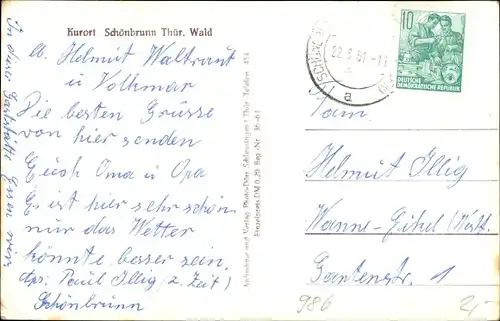 Kurort Schönbrunn Thür. Wald
lb. Helmut Waltraut
u Volkmar
Die besten Grüsse
von hier senden
Euch Oma u Opa
Es ist hier sehr schön
nur das Wetter
könnte besser sein.
Abs: Paul Illig (z. Zeit)
Schönbrunn
In dieser Gaststätte Essen wir
Aufnahme und Verlag Photo-Dörr Schleusingen / Thür. Telefon 454
Einzelpreis DM 0,20 Reg.-Nr. 36-61
22.8.61-11
a
10
DEUTSCHE
DEMOKRATISCHE REPUBLIK
Fam.
Helmut Illig
Wanne-Eikel (Westf.
Gartenstr. 1
986
2,-